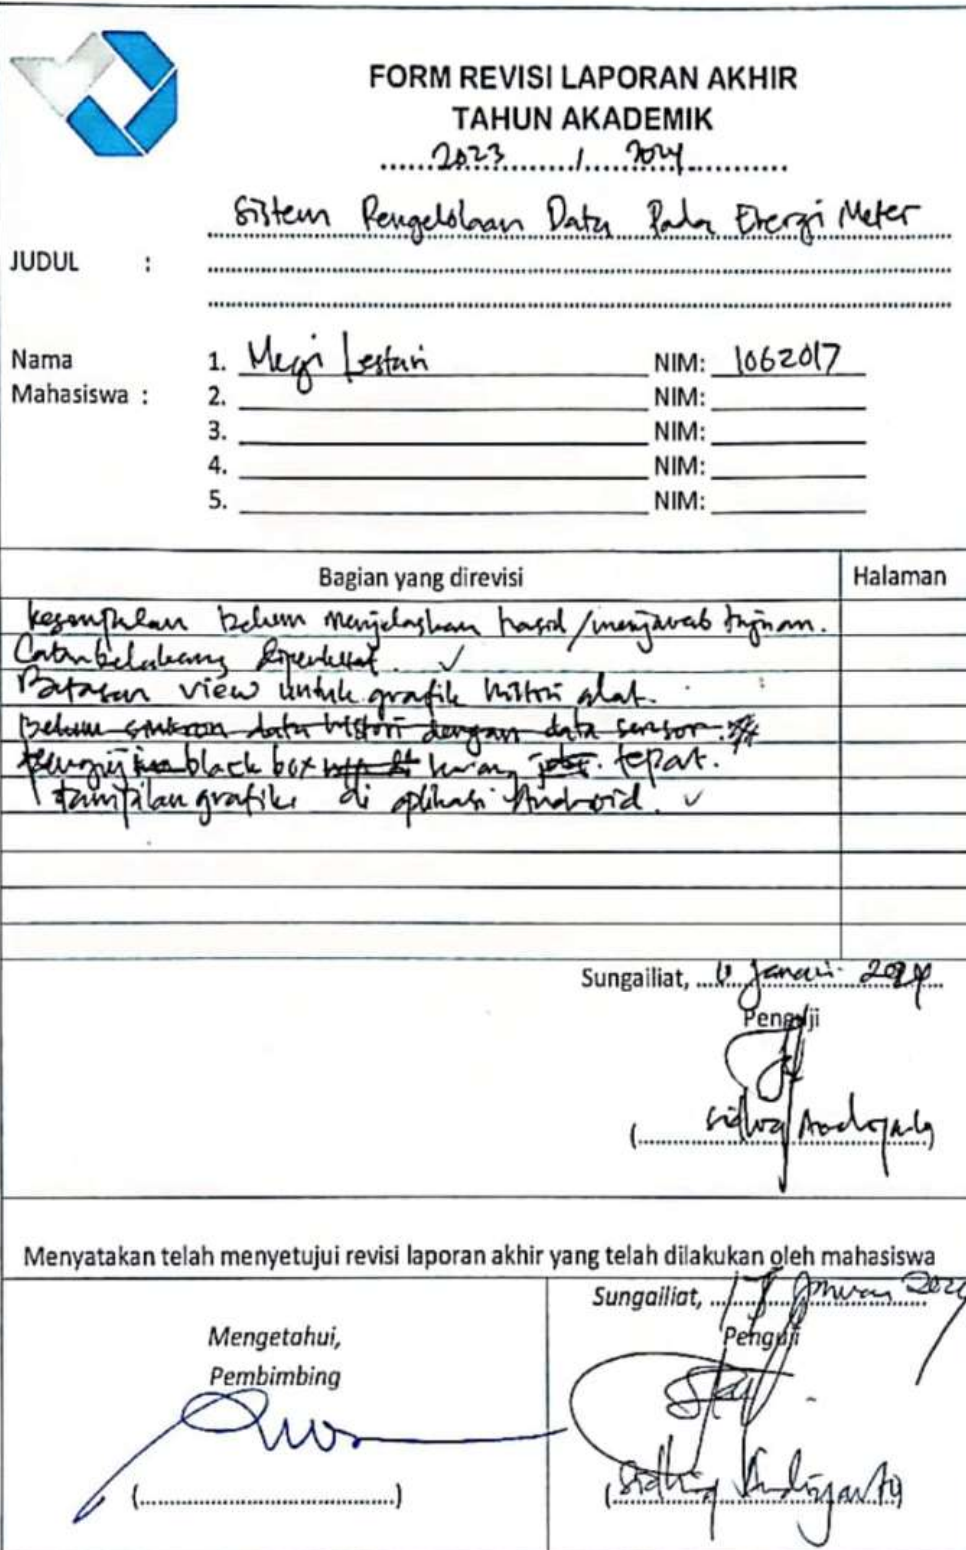 FORM REVISI LAPORAN AKHIR
TAHUN AKADEMIK
2023 / 2024
Sistem Pengelolaan Data Pada Energi Meter
JUDUL :
Nama
Mahasiswa :
1. Megi Lestari NIM: 1062017
2. NIM:
3. NIM:
4. NIM:
5. NIM:
Bagian yang direvisi Halaman
kesimpulan belum menjelaskan hasil/menjawab tujuan.
Latar belakang diperkuat. ✓
Batasan view untuk grafik histori alat.
belum sinkron data histori dengan data sensor.
black box kurang tepat.
tampilan grafik di aplikasi Android. ✓
Sungailiat, Januari 2024
Penguji
(Sidhiq Andriyanto)
Menyatakan telah menyetujui revisi laporan akhir yang telah dilakukan oleh mahasiswa
Mengetahui,
Pembimbing
(....................................)
Sungailiat, 17 Januari 2024
Penguji
(Sidhiq Andriyanto)